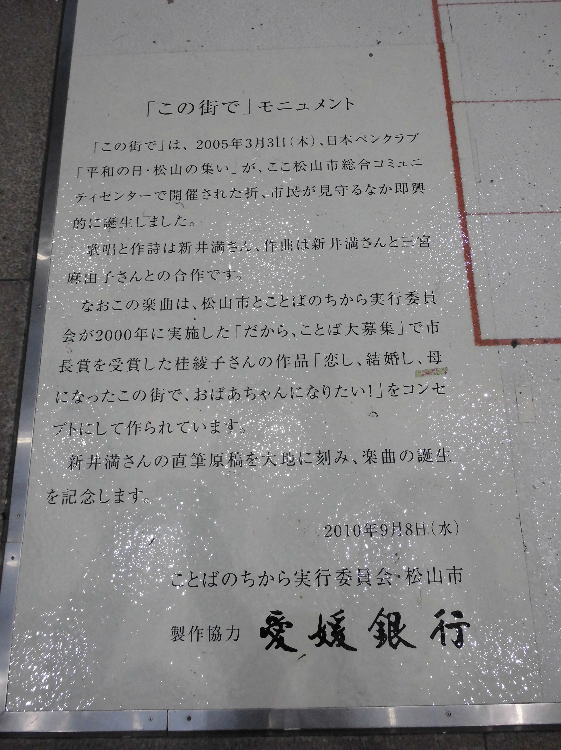 「この街で」モニュメント
「この街で」は、2005年3月3日(木)、日本ペンクラブ
「平和の日・松山の集い」が、ここ松山市総合コミュニ
ティセンターで開催された折、市民が見守るなか即興
的に誕生しました。
歌唱と作詩は新井満さん、作曲は新井満さんと三宮
麻由子さんとの合作です。
なおこの楽曲は、松山市とことばのちから実行委員
会が2000年に実施した「だから、ことば大募集」で市
長賞を受賞した桂綾子さんの作品「恋し、結婚し、母
になったこの街で、おばあちゃんになりたい!」をコンセ
プトにして作られています。
新井満さんの直筆原稿を大地に刻み、楽曲の誕生
を記念します。
2010年9月8日(水)
ことばのちから実行委員会・松山市
製作協力 愛媛銀行